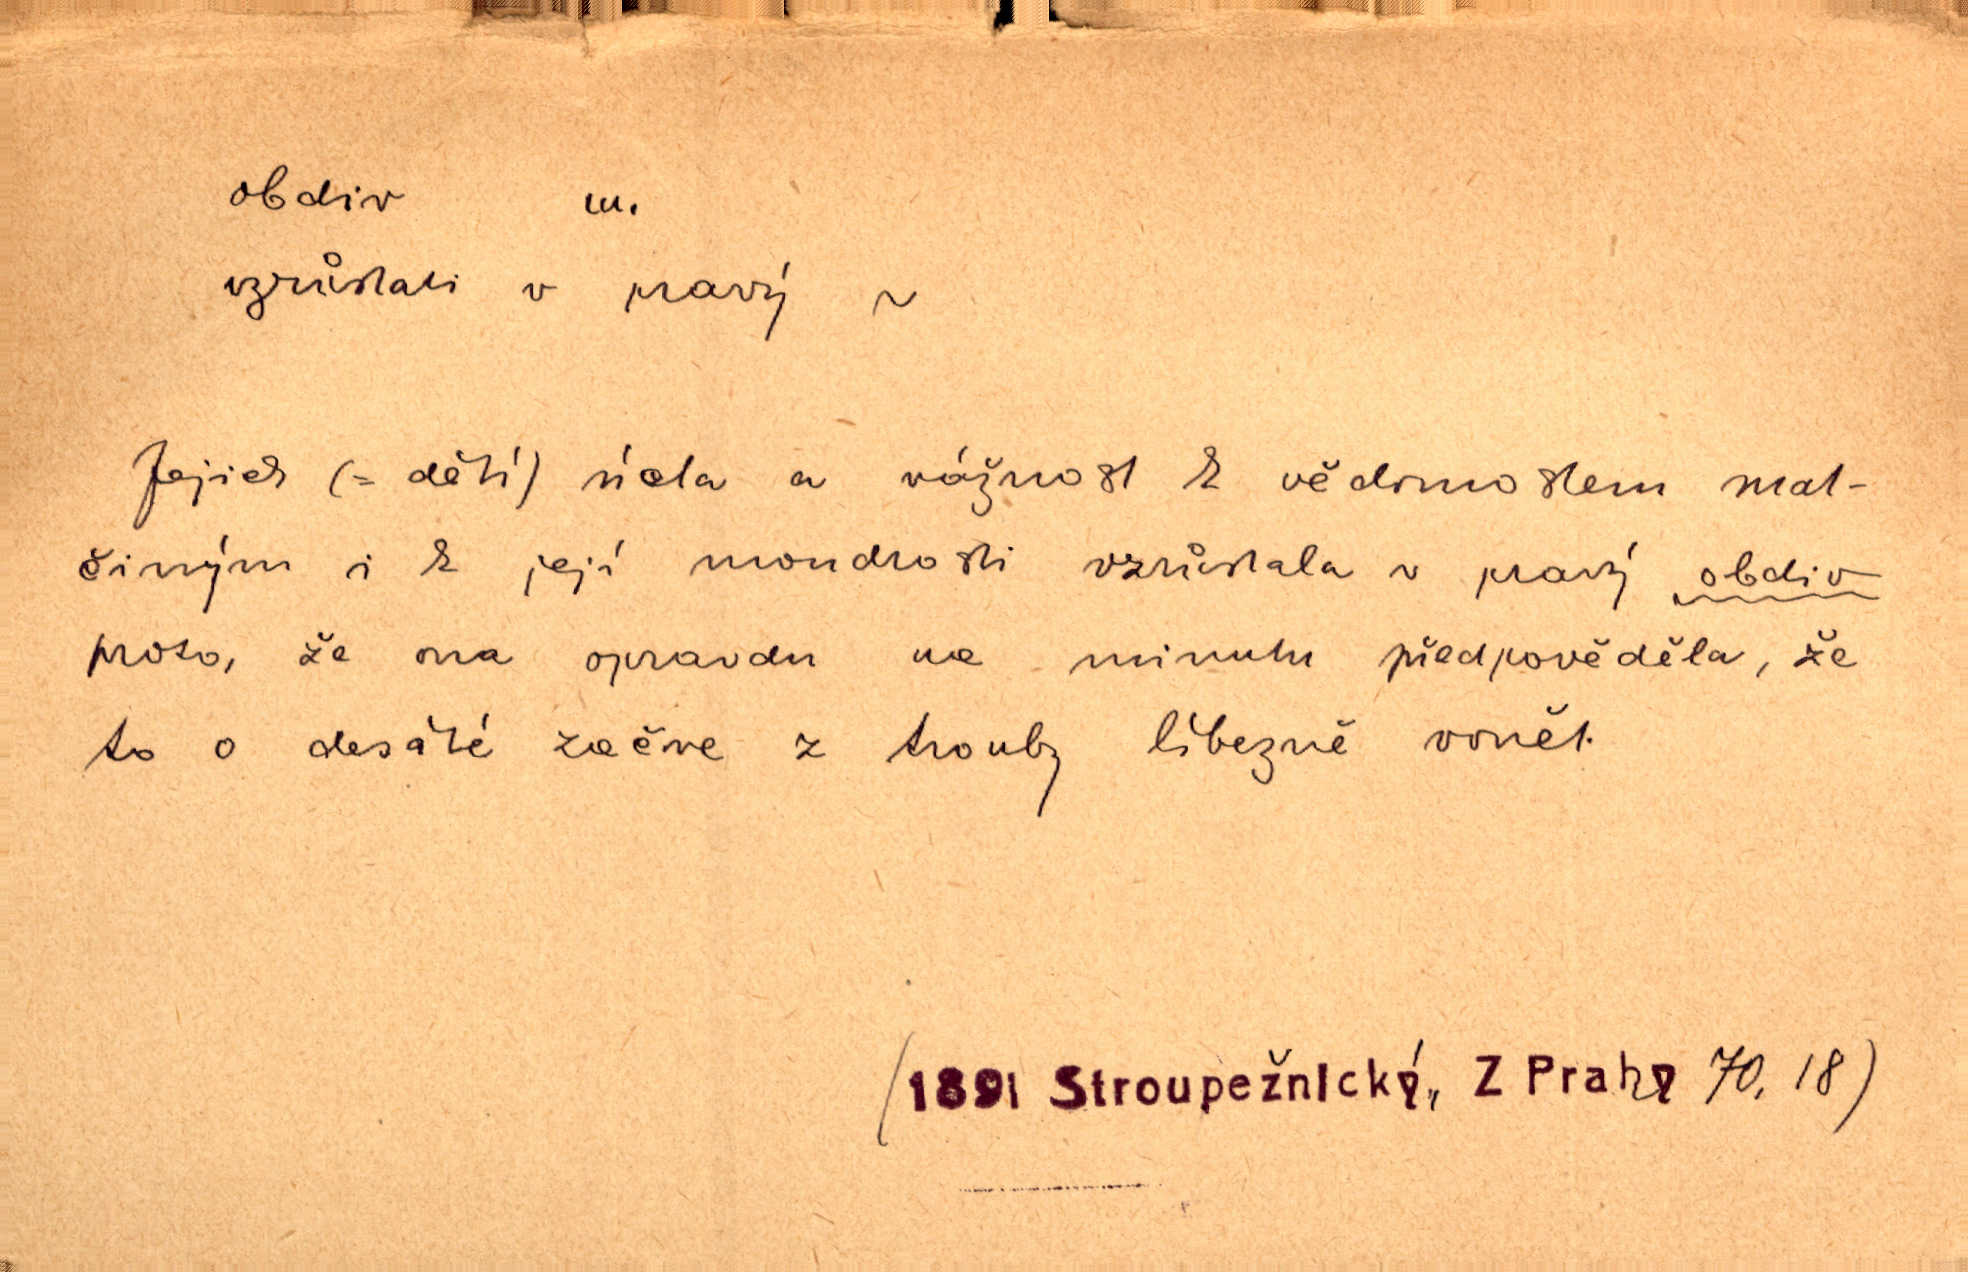 obdiv m.
vzrůstati v pravý ~
Jejich (= dětí) úcta a vážnost k vědomostem mat-
činým i k její moudrosti vzrůstala v pravý obdiv
proto, že ona opravdu na minutu předpověděla, že
to o desáté začne z trouby líbezně vonět.
(1891 Stroupežnický, Z Prahy 70, 18)